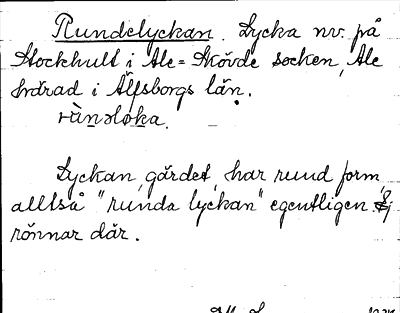 Rundelyckan. Lycka nv. på
Stockhult i Ale-Skövde socken, Ale
härad i Älfsborgs län.
Lyckan, gärdet, har rund form,
alltså "runda lyckan" egentligen. Ej
rönnar där.